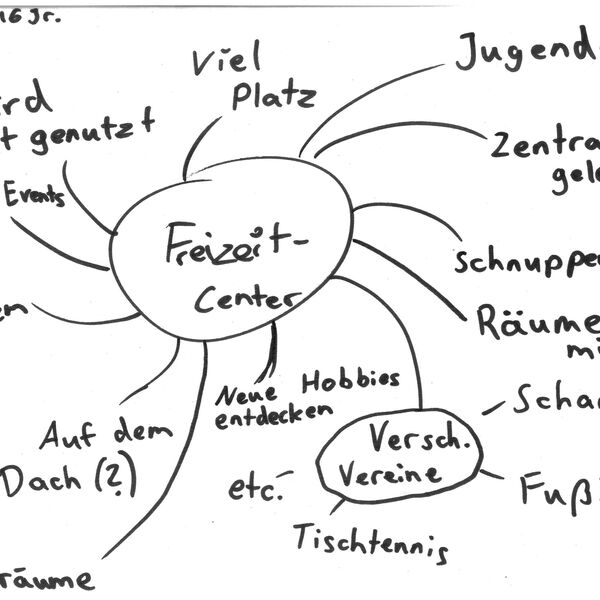 16 Jr.
Viel
Platz
Jugend
ird
t genutzt
Events
Zentra
gele
Freizeit-
Center
Schnupper
en
Räume
mi
Neue Hobbies
entdecken
Auf dem
Dach (?)
Versch.
Vereine
Scha
Fuß
etc.
Tischtennis
räume